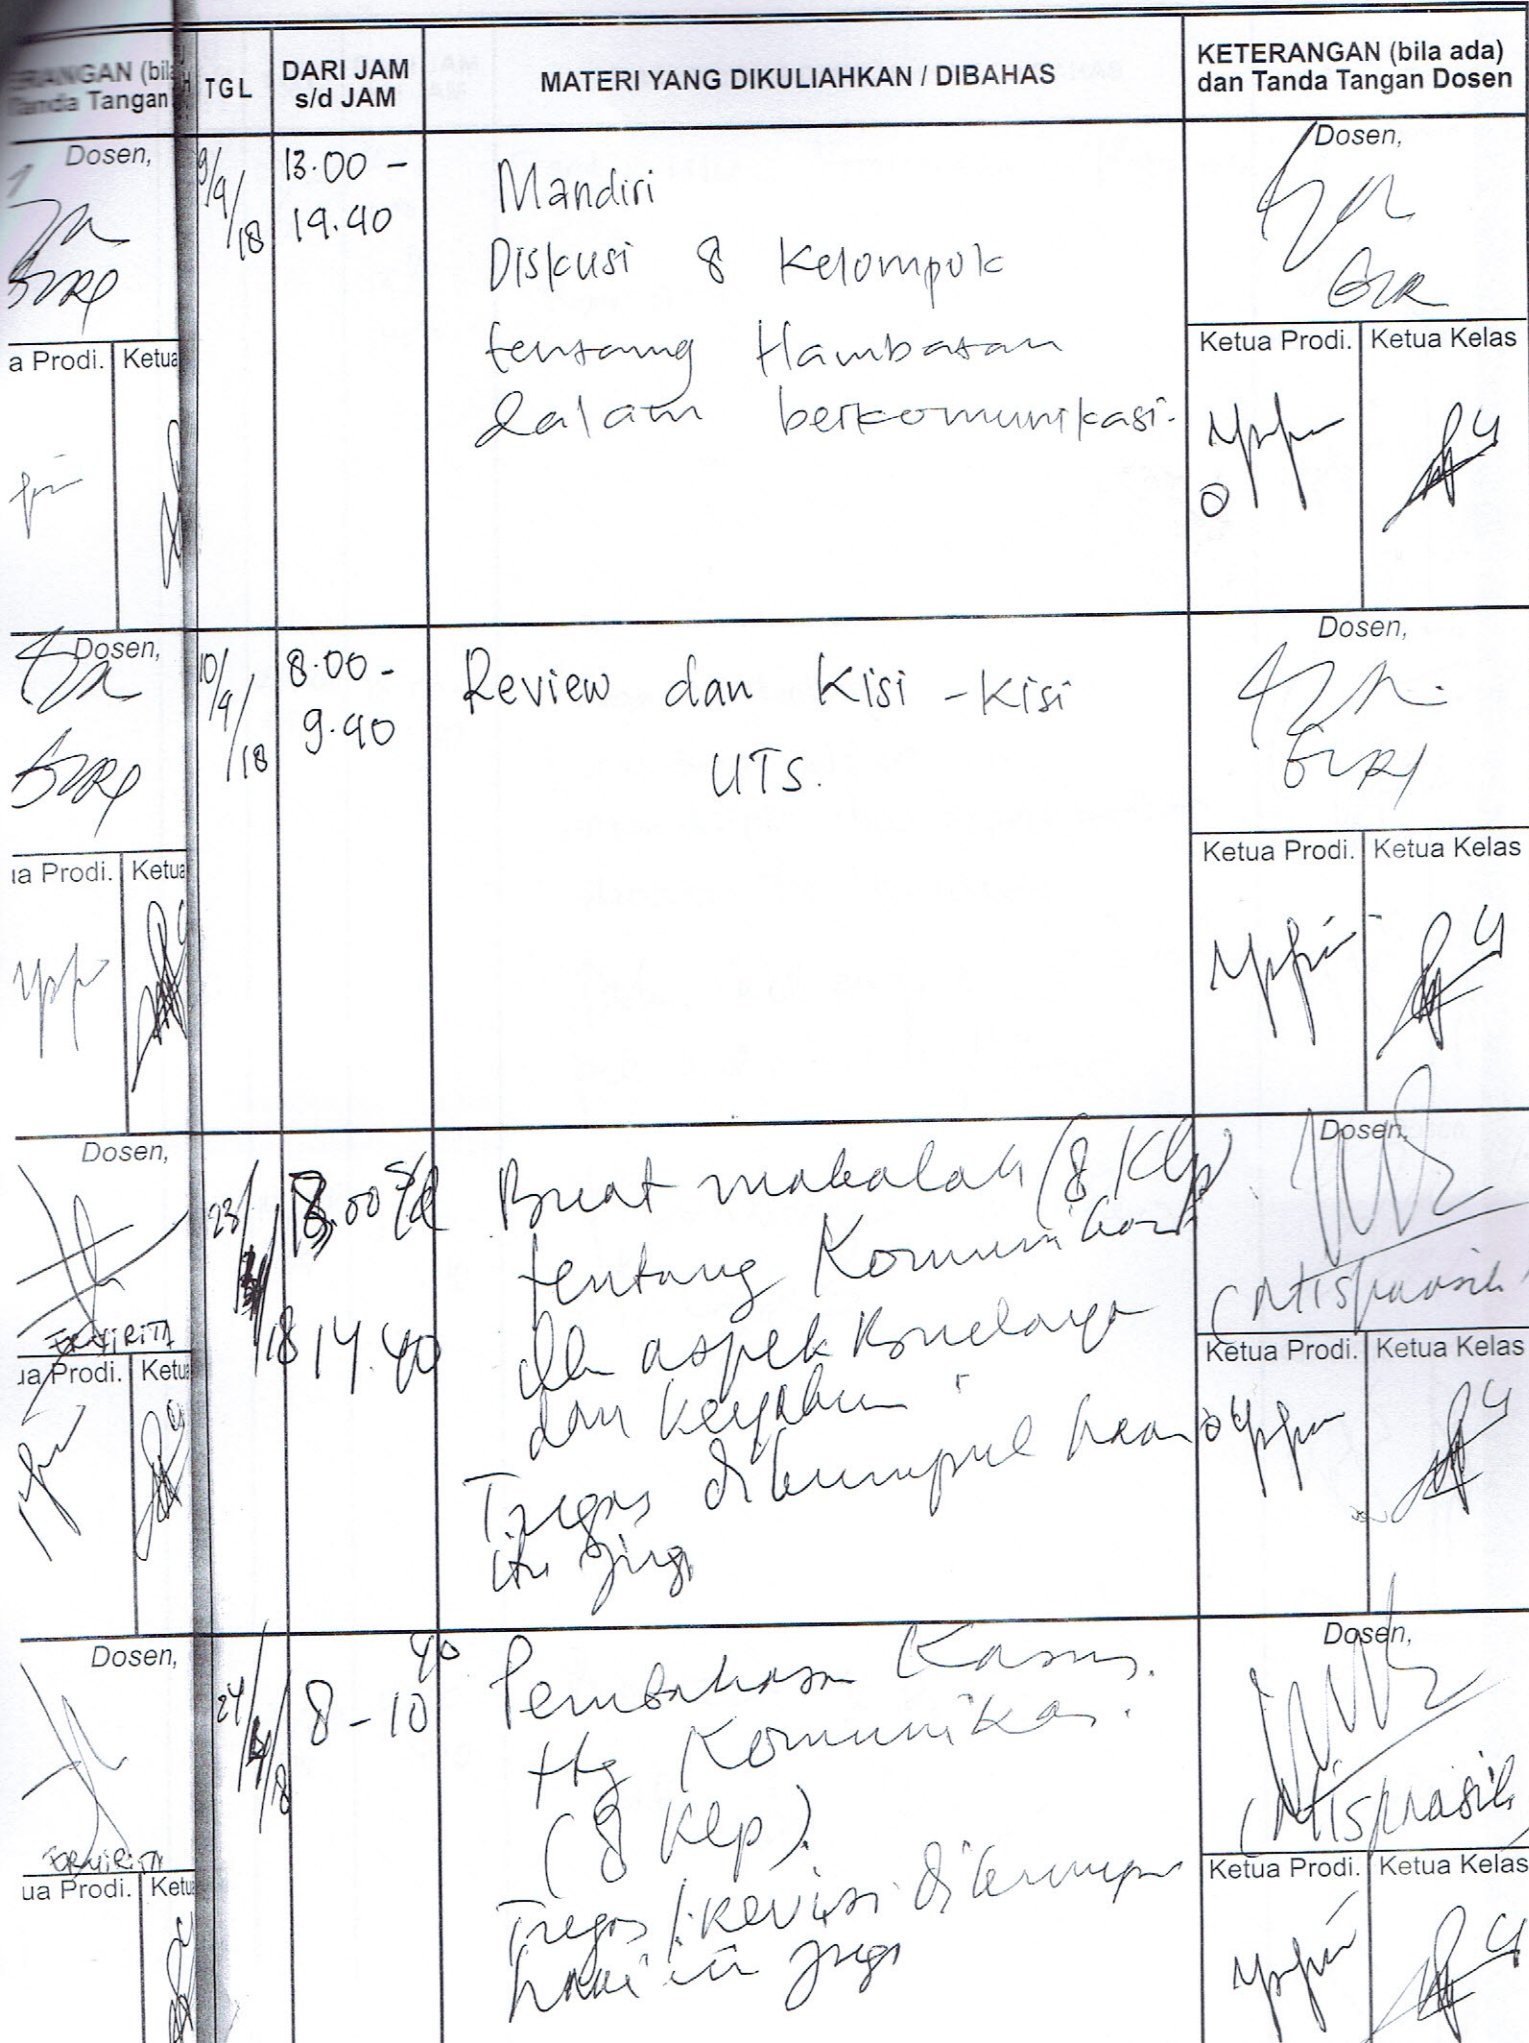 ERANGAN (bila
Tanda Tangan
TGL
DARI JAM
s/d JAM
MATERI YANG DIKULIAHKAN / DIBAHAS
KETERANGAN (bila ada)
dan Tanda Tangan Dosen
Dosen,
a Prodi.
Ketua
9/4/18
13.00 -
14.40
Mandiri
Diskusi 8 Kelompok
tentang Hambatan
dalam berkomunikasi.
Dosen,
Ketua Prodi.
Ketua Kelas
Dosen,
ua Prodi.
Ketua
10/4/18
8.00 -
9.40
Review dan Kisi - Kisi
UTS.
Dosen,
Ketua Prodi.
Ketua Kelas
Dosen,
ua Prodi.
Ketua
23/
18
13.00 s/d
14.40
Buat makalah (8 Klp)
tentang Komunikasi
dlm aspek Budaya
dan
Tugas dikumpul hari
itu juga
Dosen,
Ketua Prodi.
Ketua Kelas
Dosen,
ua Prodi.
Ketua
24/
/18
8 - 10 40
Pembahasan Kasus.
ttg Komunikasi.
(8 Klp).
Tugas / revisi dikumpul
hari itu juga
Dosen,
Ketua Prodi.
Ketua Kelas